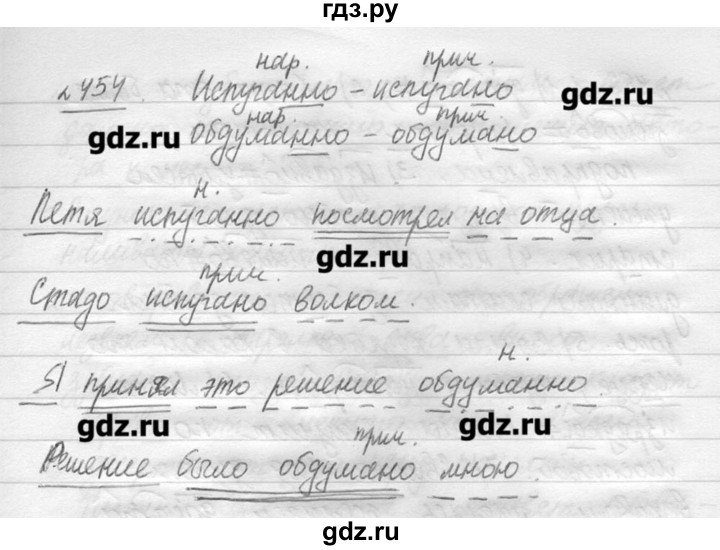 гдз.ру
нар. прич.
№454. Испуганно – испугано
gdz.ru
нар. прич.
gdz.ru Обдуманно – обдумано
н.
Петя испуганно посмотрел на отца.
gdz.ru
прич.
Стадо испугано волком.
н.
Я принял это решение обдуманно.
gdz.ru gdz.ru
прич.
Решение было обдумано мною.
gdz.ru